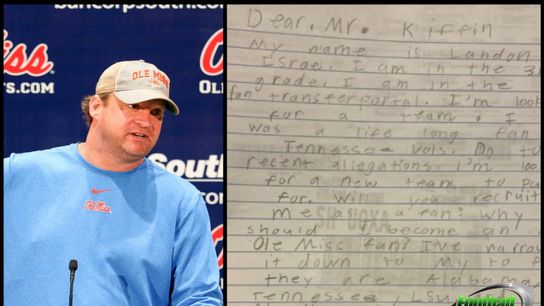 bancorpsouth.com
Ole Miss
S.COM
OLE MISS
South
Ole Miss
Dear, Mr. Kiffin
My name is Landon
Israel. I am in the 3
grade. I am in the
fan transferportal. I'm look
for a team. I
was a life long fan
Tennessee vols. Do to
recent allegations. I'm loo
for a new team to
for. Will you recruit
me as a fan? Why
should become an
Ole Miss fan? I've narrow
it down to My to
they are Alabama,
Tennessee, LSU
Football